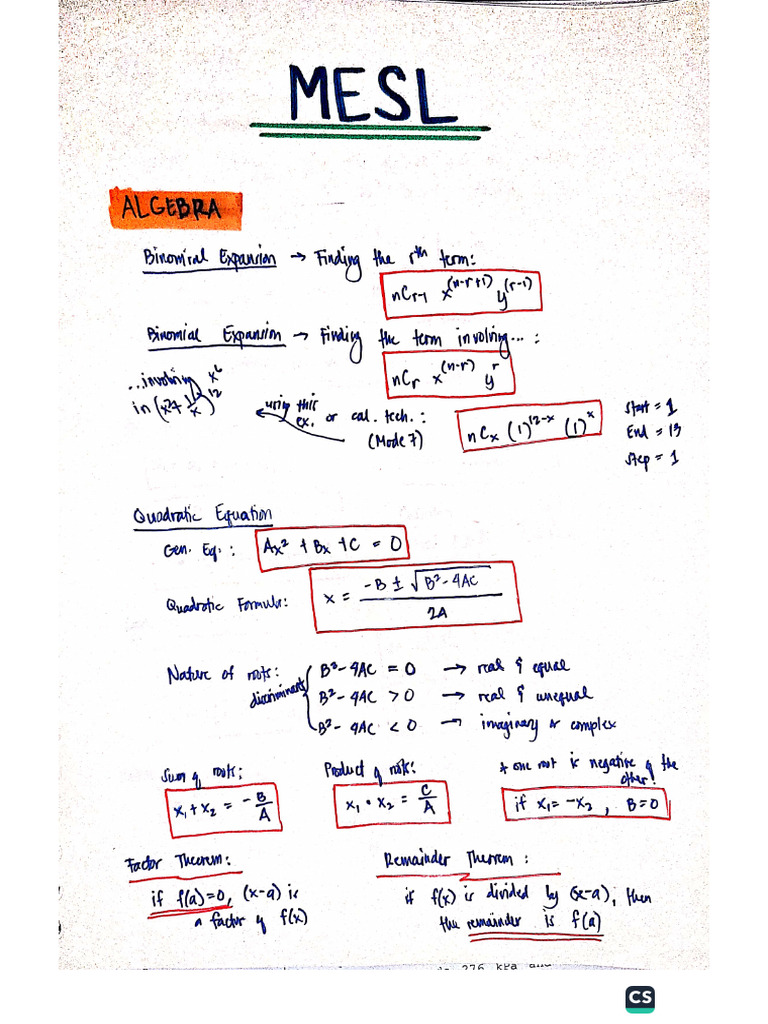 MESL
ALGEBRA
Binomial Expansion → Finding the rth term:
nCr-1 x^(n-r+1) y^(r-1)
Binomial Expansion → Finding the term involving... :
nCr x^(n-r) y^r
...involving x^6
in (x² + 1/x)^12
using this ex. or cal. tech. :
(Mode 7)
nCx (1)^12-x (1)^x
Start = 1
End = 13
Step = 1
Quadratic Equation
Gen. Eq. : Ax² + Bx + C = 0
Quadratic Formula: x = (-B ± √(B² - 4AC)) / 2A
Nature of roots: B² - 4AC = 0 → real & equal
discriminant B² - 4AC > 0 → real & unequal
B² - 4AC < 0 → imaginary or complex
Sum of roots:
x₁ + x₂ = -B/A
Product of roots:
x₁ • x₂ = C/A
* one root is negative of the other!
if x₁ = -x₂, B = 0
Factor Theorem:
if f(a) = 0, (x-a) is
a factor of f(x)
Remainder Theorem :
if f(x) is divided by (x-a), then
the remainder is f(a)
276 kPa and
CS